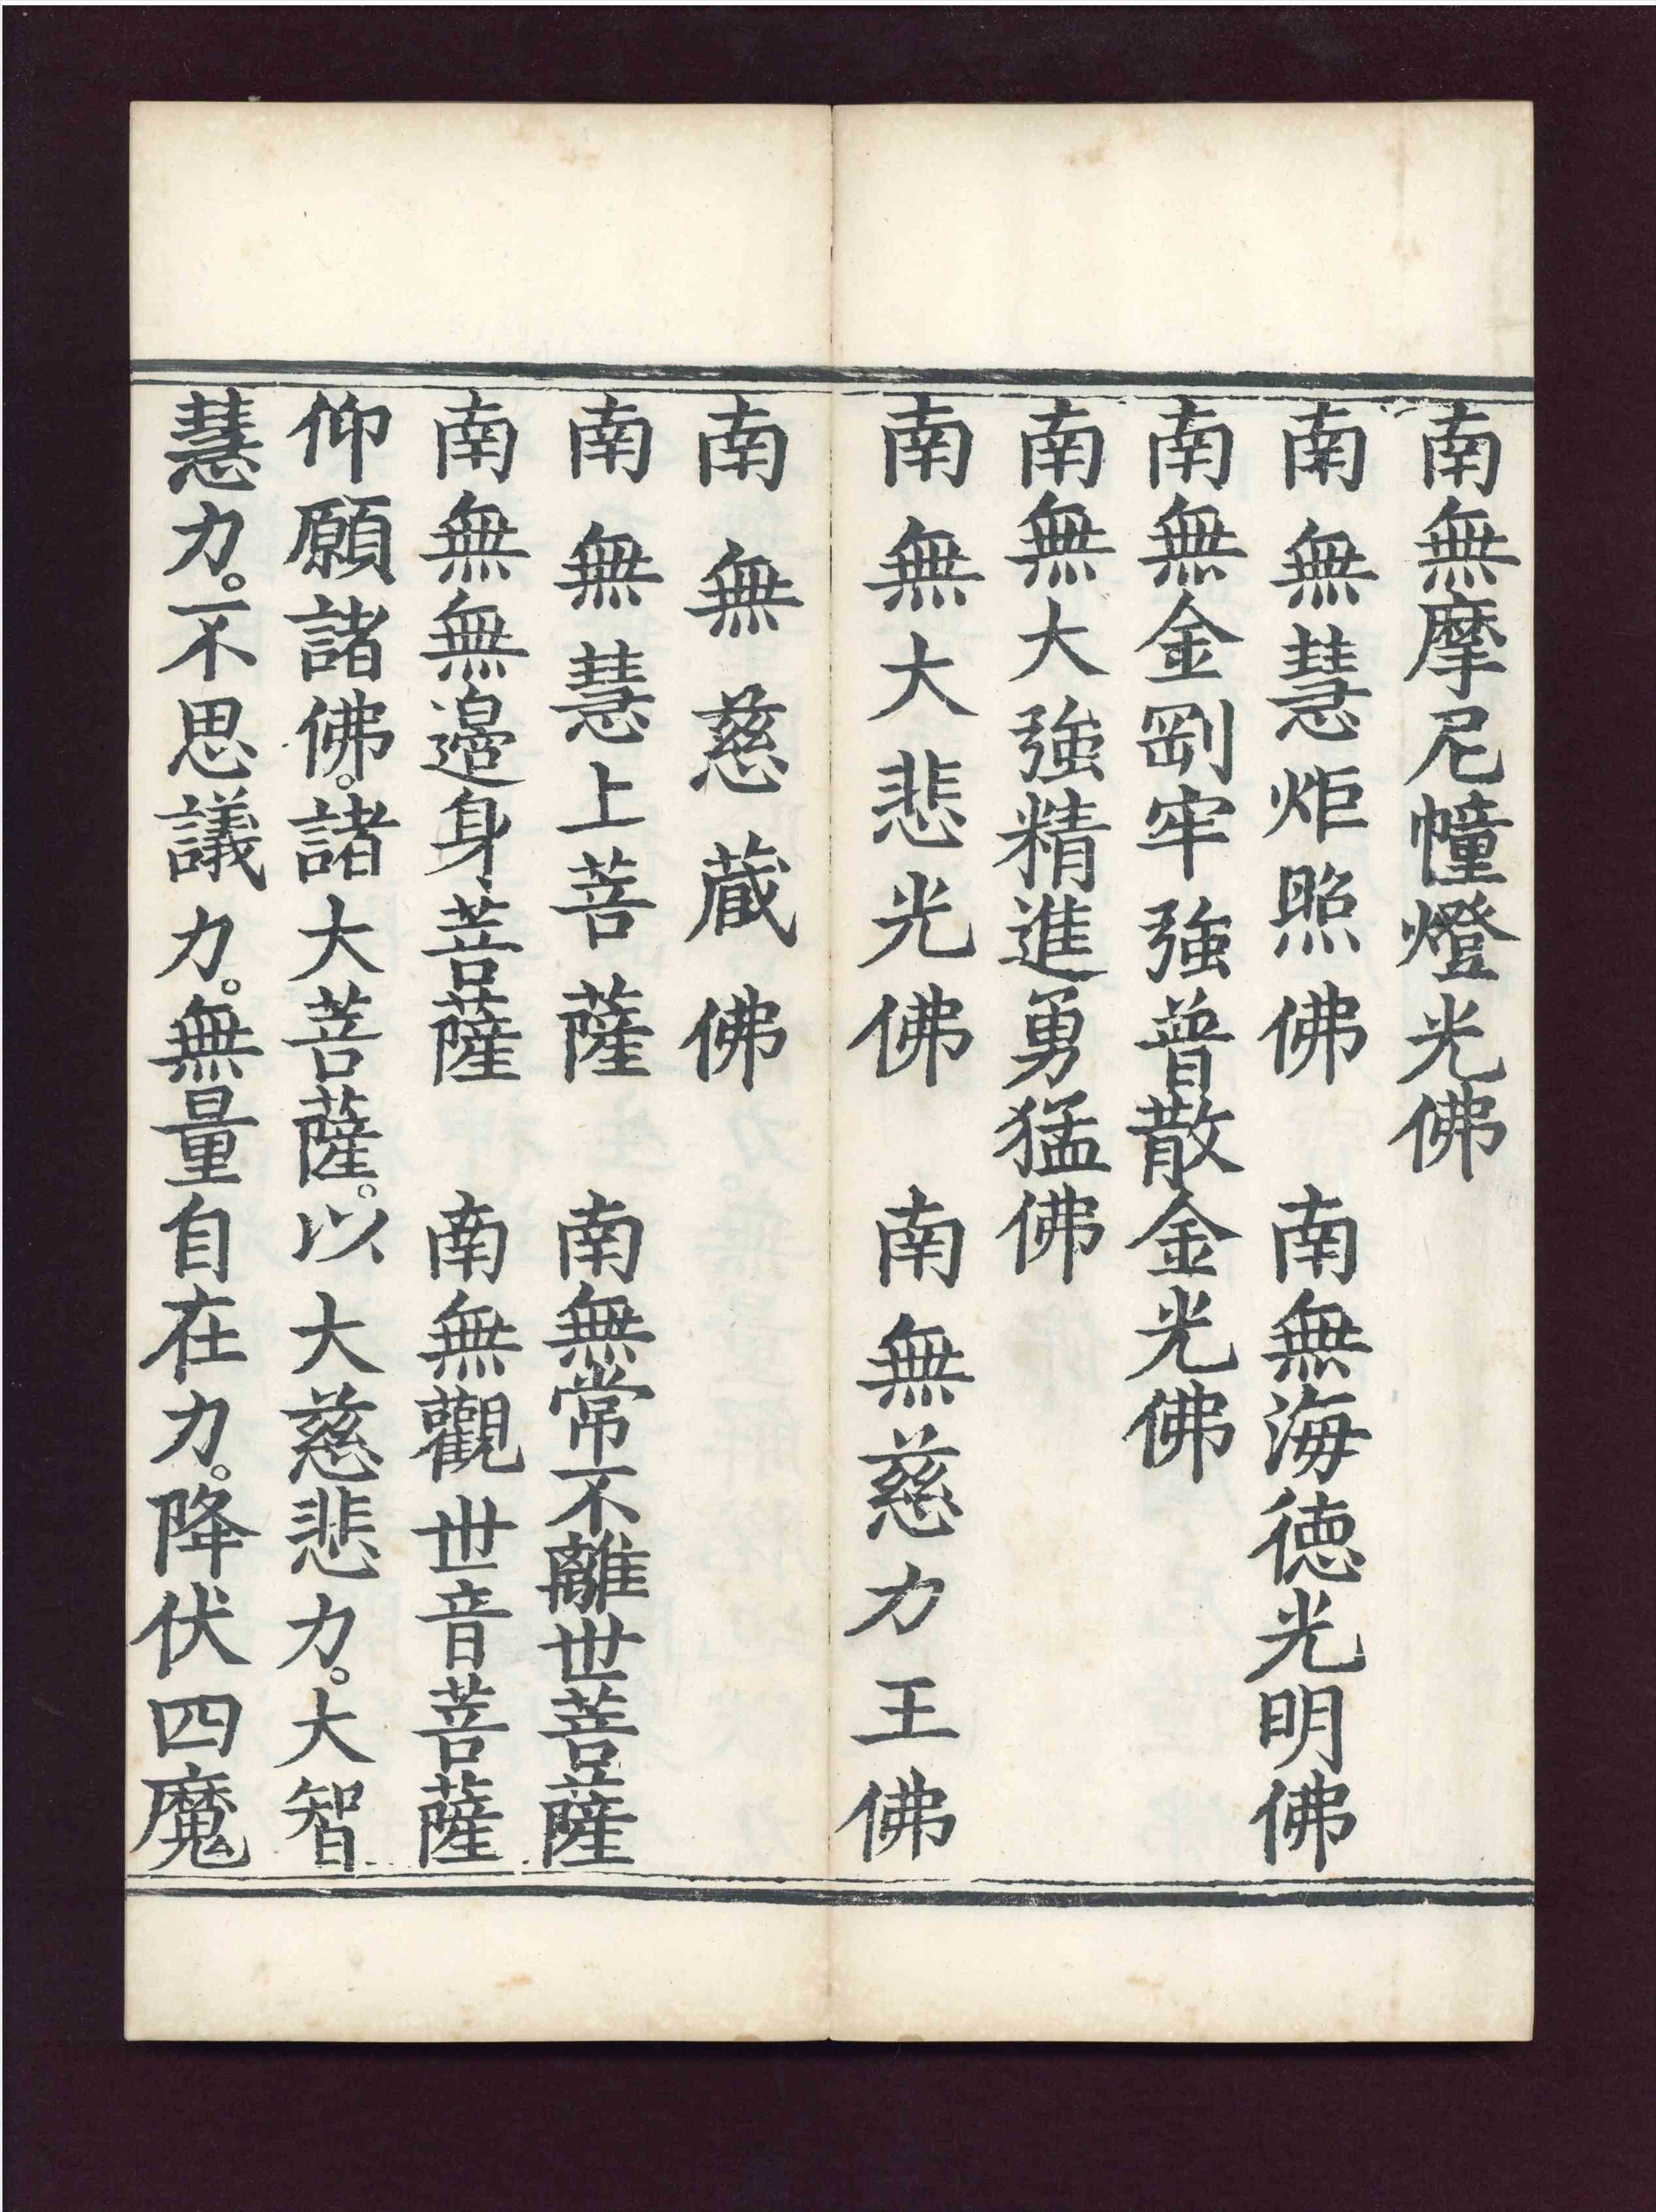 南無摩尼幢燈光佛
南無慧炬照佛　南無海徳光明佛
南無金剛牢強普散金光佛
南無大強精進勇猛佛
南無大悲光佛　南無慈力王佛
南無慈蔵佛
南無慧上菩薩　南無常不離世菩薩
南無無邊身菩薩　南無觀世音菩薩
仰願諸佛。諸大菩薩。以大慈悲力。大智
慧力。不思議力。無量自在力。降伏四魔